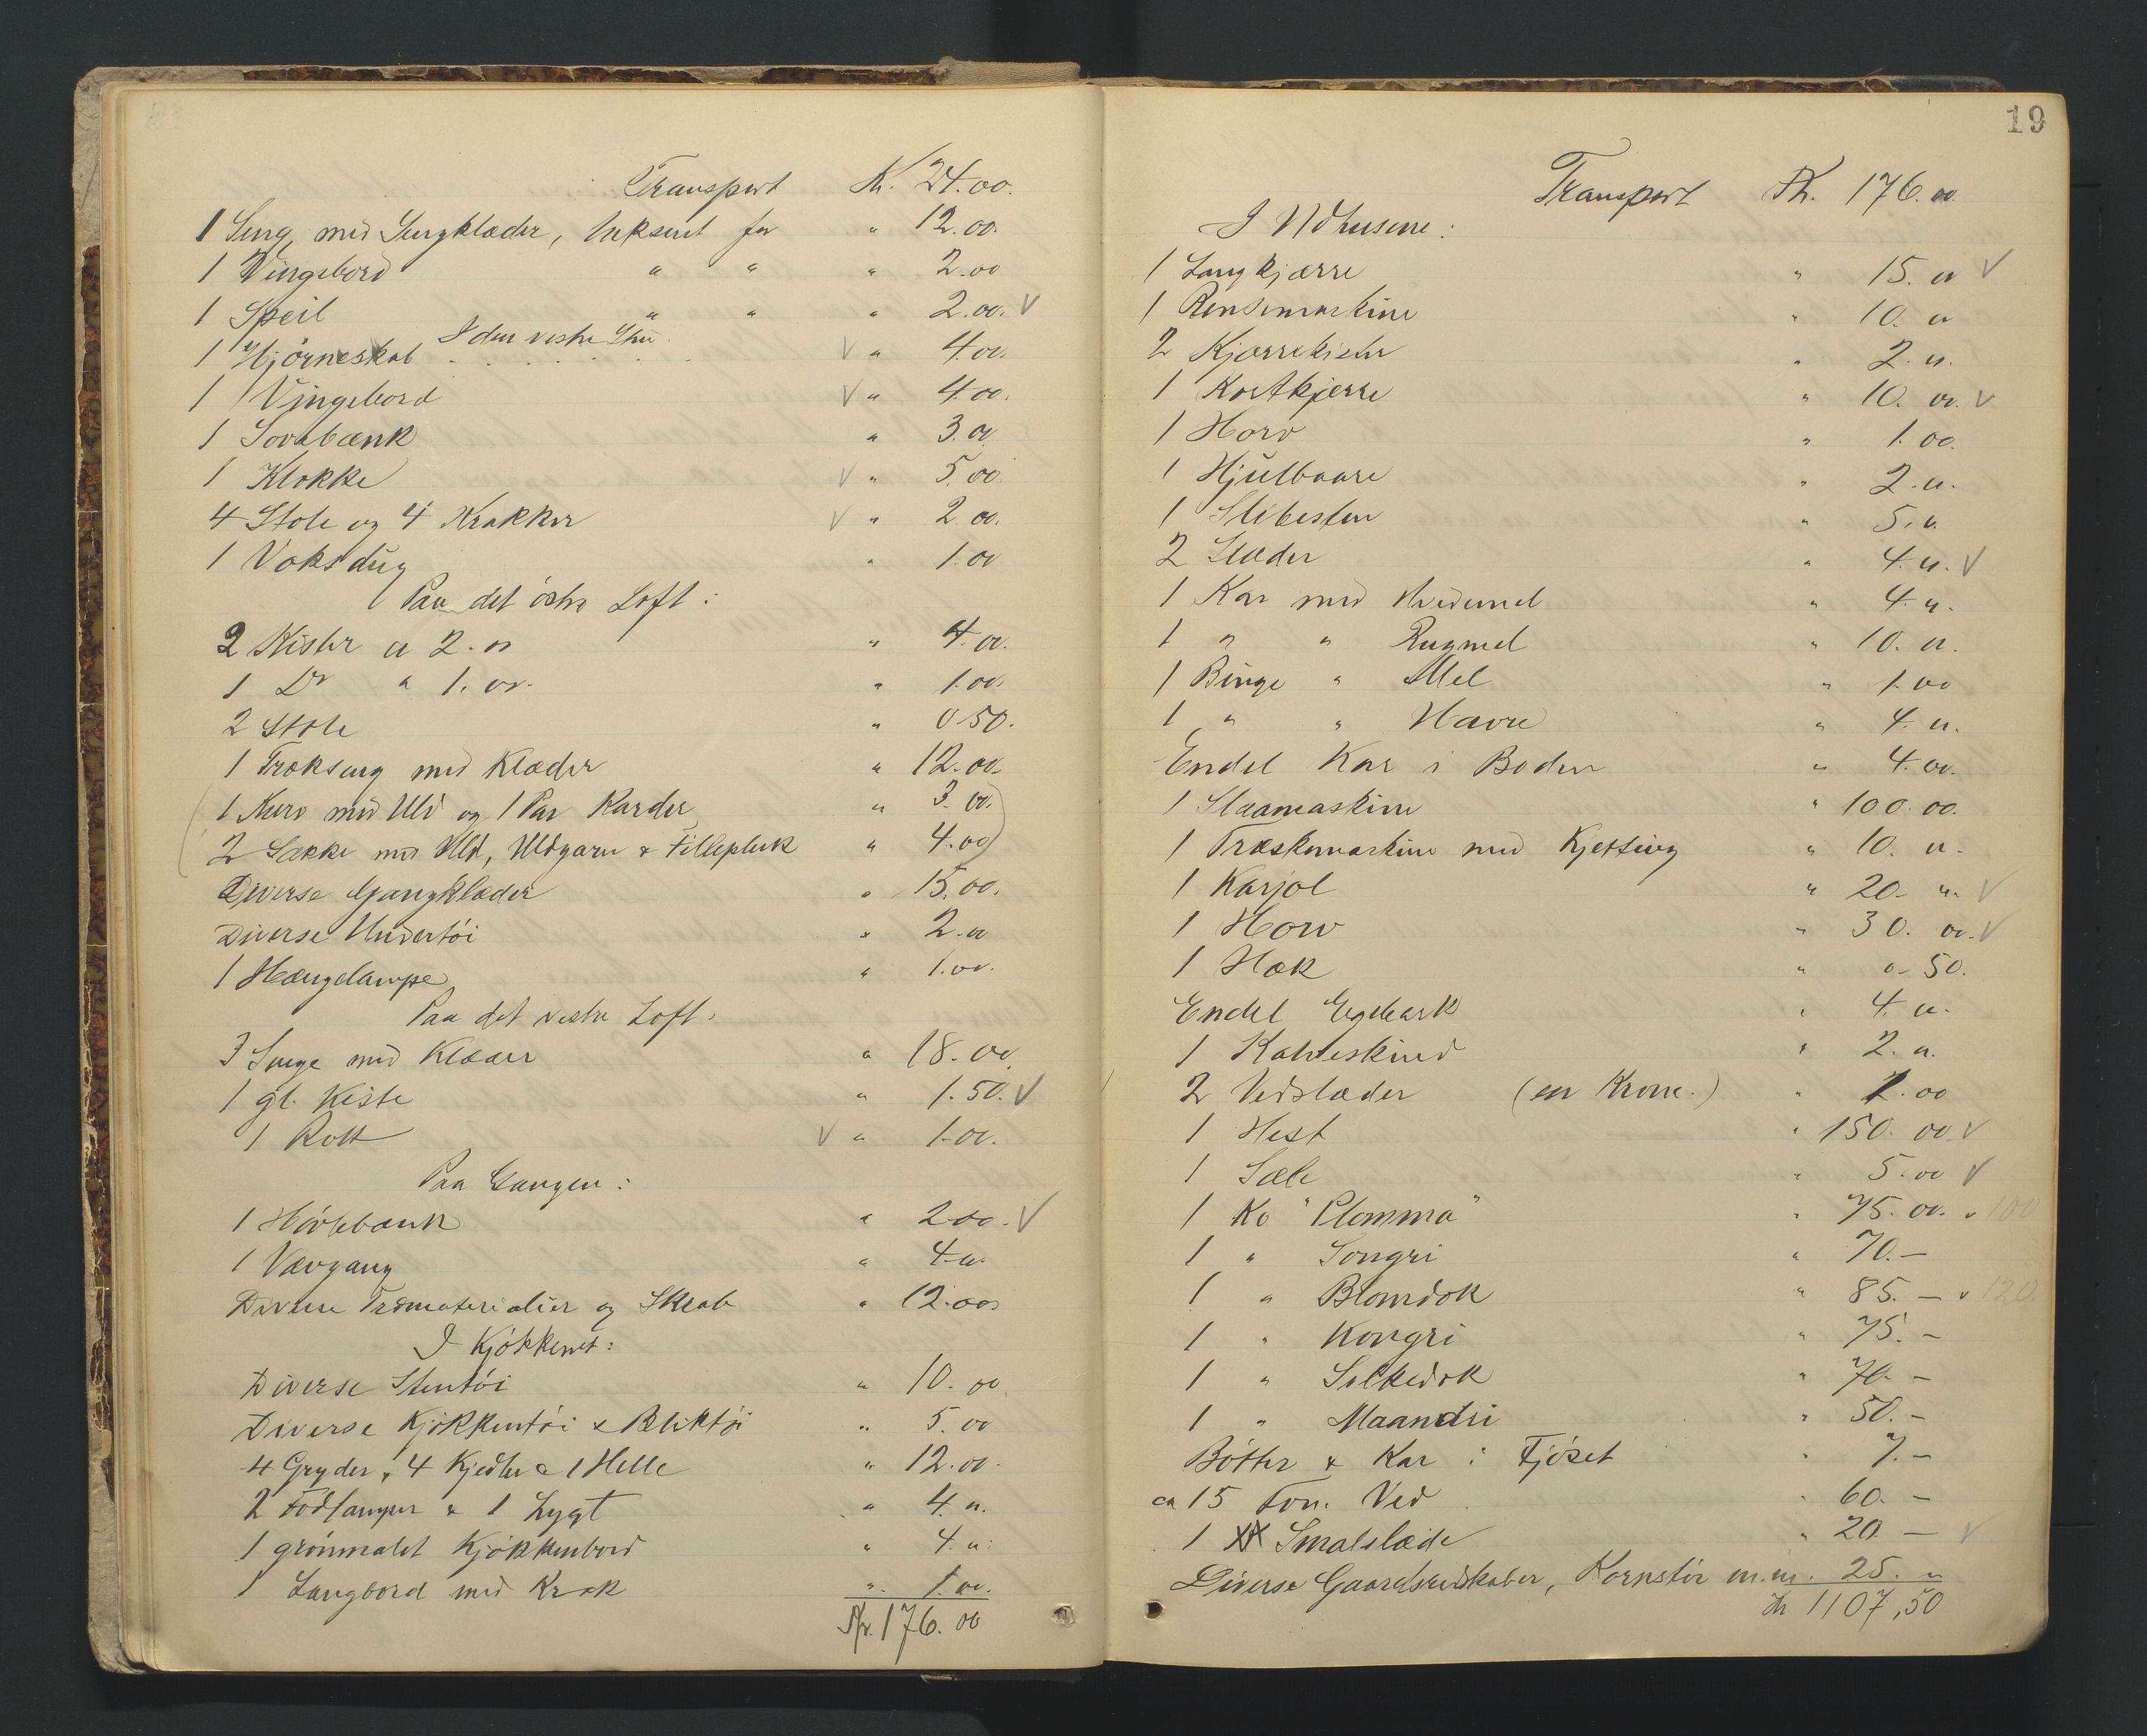 Transport Kr. 24.00.
1 Seng, med Sengklæder, taksert for " 12.00.
1 Vingebord " " " 2.00
1 Speil " " " 2.00. V
I den vestre Stu.
1 Hjørneskab . . . . . . V " 4.00.
1 Vingebord V " 4.00.
1 Sovebænk " 3.00
1 Klokke V " 5.00
4 Stole og 4 Krakker V " 2.00.
1 Voksdug " 1.00
Paa det østre Loft:
2 Kister a 2.00 " 4.00.
1 Do a 1.00. " 1.00.
2 Stole " 0.50.
1 Trækseng med Klæder " 12.00.
(1 Kurv med Uld og 1 Par Karder " 3.00.)
(2 Sække med Uld, Uldgarn & Filleplukk " 4.00)
Diverse Gangklæder " 15.00.
Diverse Undertøi " 2.00
1 Hængelampe " 1.00.
Paa det vestre Loft.
3 Senge med Klæder " 18.00.
1 gl. Kiste " 1.50. V
1 Rokk V " 1.00.
Paa Gangen:
1 Høvlebænk " 2.00. V
1 Vævgang " 4.00.
Diverse Træmaterialier og Skrab " 12.00
I Kjøkkenet:
Diverse Stentøi " 10.00.
Diverse Kjøkkentøi & Bliktøi " 5.00
4 Gryder, 4 Kjedler & 1 Helle " 12.00.
2 Fodlamper & 1 Lygt " 4.00.
1 grønmalet Kjøkkenbord " 4.00.
1 Langbord med Krak " 1.00.
Kr. 176.00
19
Transport Kr. 176.00
I Udhusene:
1 Langkjærre " 15.00 V
1 Rensemaskine " 10.00
2 Kjærrekister " 2.00.
1 Kortkjerre " 10.00. V
1 Horv " 1.00.
1 Hjulbaare " 2.00.
1 Slibesten " 5.00.
2 Slæder " 4.00. V
1 Kar med Hvedemel " 4.00.
1 " " Rugmel " 10.00.
1 Binge " Mel " 1.00
1 " " Havre " 4.00.
Endel Kar i Boden " 4.00.
1 Slaamaskine " 100.00.
1 Træskemaskine med Kjetting " 10.00.
1 Karjol " 20.00. V
1 Horv " 30.00. V
1 Hæk " 0.50.
Endel Egebark " 4.00.
1 Kalveskind " 2.00.
2 Vedslæder (en Krone.) " 1.00
1 Hest " 150.00 V
1 Sæle " 5.00 V
1 Ko "Plomma" " 75.00. v 100
1 " Songri " 70.–
1 " Blomdok " 85.– v 120.
1 " Kongri " 75.–
1 " Silkedok " 70.–
1 " Maandsi " 50.–
Bøtter & Kar i Fjøset " 7.–
ca 15 Fvn. Ved " 60.–
1 Smalslæde " 20.– V
Diverse Gaardsredskaber, Kornstør m.m. 25.00
Kr. 1107,50